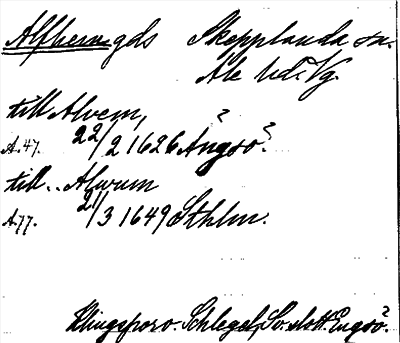 Alfhem gds Skepplanda sn.
Ale hd. Vg.
till Alvem,
A.47. 22/2 1626 Ängsö?
till.. Alwum
A.77. 21/3 1649 Sthlm.
Klingspor o. Schlegel, Sv. slott. Engsö?